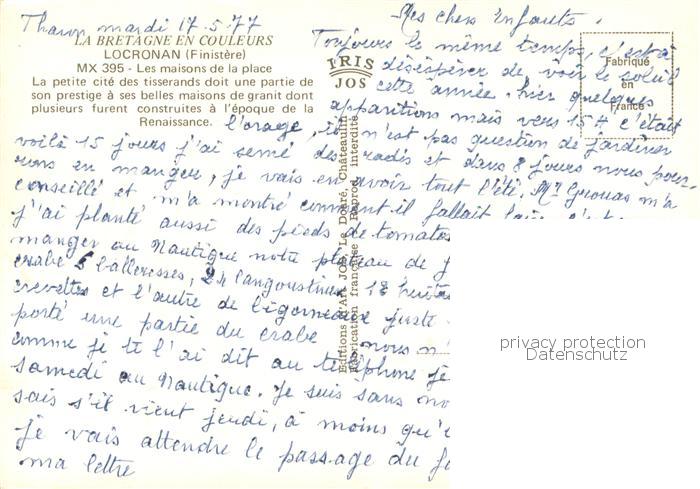 Tharon mardi 17.5.77
LA BRETAGNE EN COULEURS
LOCRONAN (Finistère)
MX 395 - Les maisons de la place
La petite cité des tisserands doit une partie de
son prestige à ses belles maisons de granit dont
plusieurs furent construites à l'époque de la
Renaissance.
IRIS
JOS
Fabriqué
en
France
Editions d'Art JOS, Le Doaré, Châteaulin
Fabrication française - Reprod. interdite
Mes chers Enfants.
Toujours le même temps, c'est à
désespérer de voir le soleil
cette année. hier quelques
apparitions mais vers 15 h c'était
l'orage, il n'est pas question de jardiner
voilà 15 jours j'ai semé des radis et dans 8 jours nous pour
rons en manger, je vais en avoir tout l'été. Mr m'a
conseillé et m'a montré comment il fallait faire
j'ai planté aussi des pieds de tomates
manger au Nautique notre plateau de
crabe 5 balleresses, 24 langoustines 18 huitres
crevettes et l'autre de bigorneaux juste
porté une partie du crabe nous
comme je te l'ai dit au téléphone je
samedi au Nautique. Je suis sans
sais s'il vient jeudi, à moins qu'
je vais attendre le passage du
ma lettre
privacy protection
Datenschutz